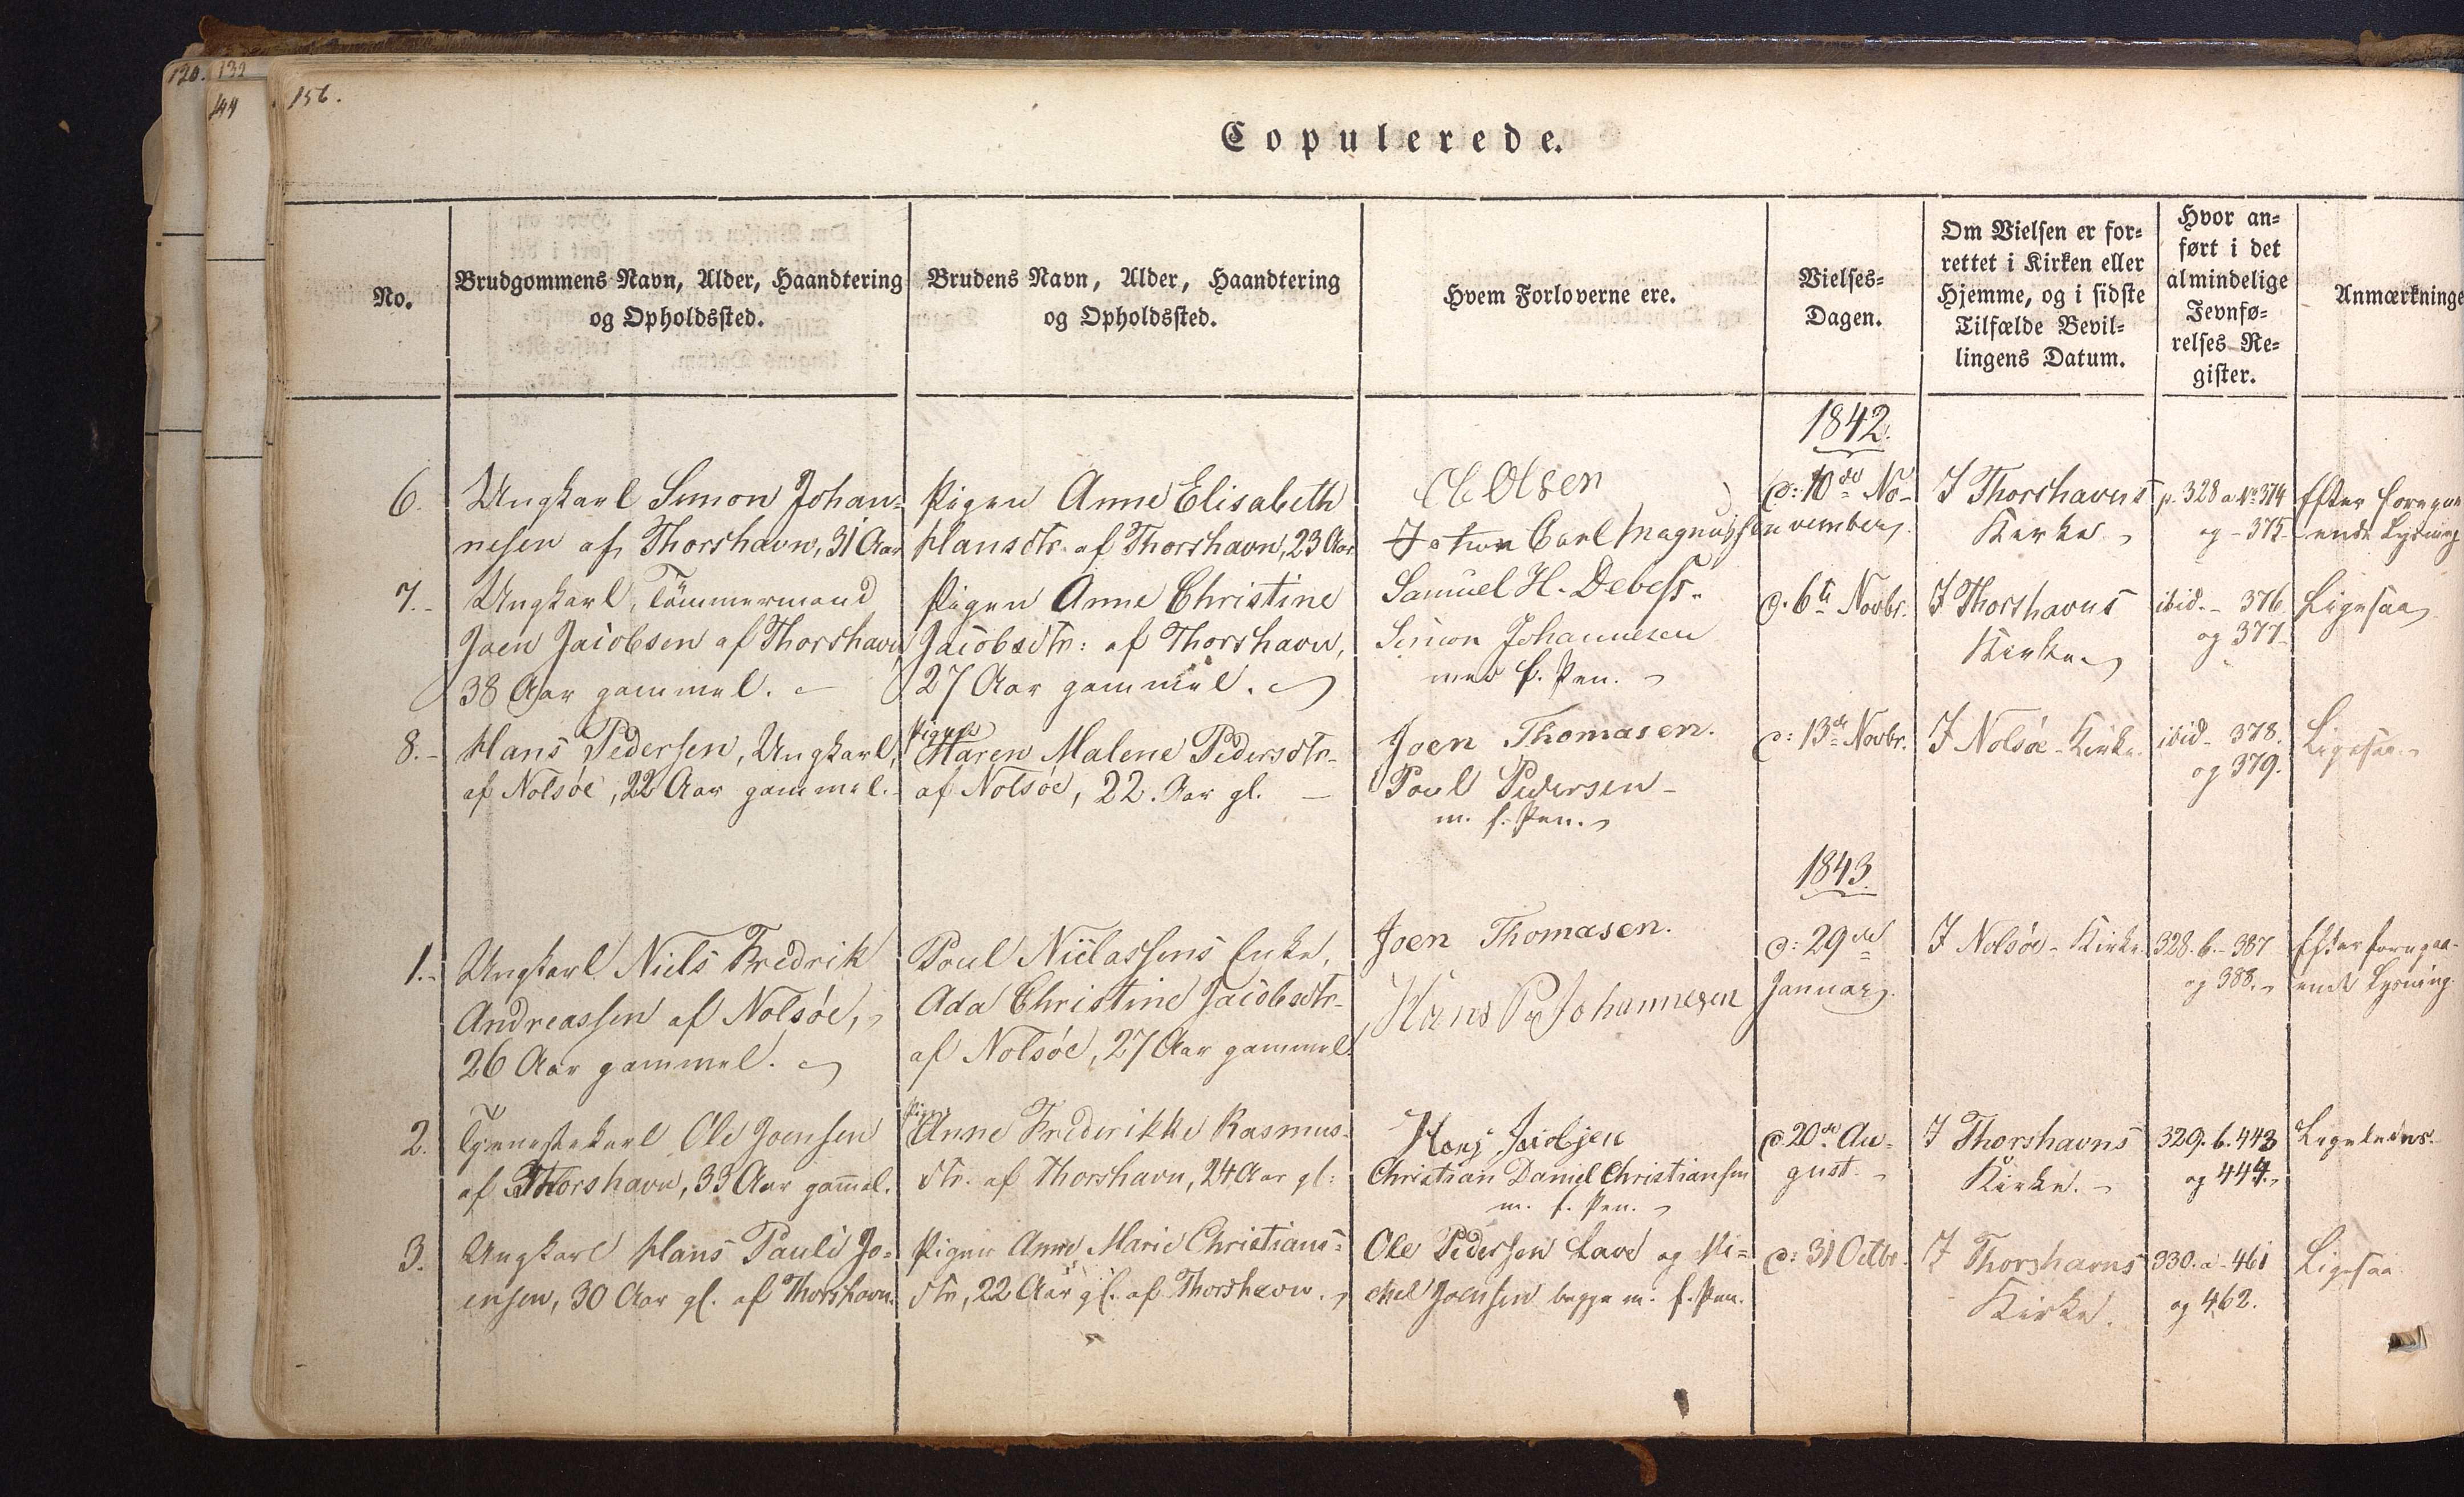 120.
132
144
156.
Copulerede.
No.
Brudgommens Navn, Alder, Haandtering
og Opholdssted.
Brudens Navn, Alder, Haandtering
og Opholdssted.
Hvem Forloverne ere.
Vielses-
Dagen.
Om Vielsen er for-
rettet i Kirken eller
Hjemme, og i sidste
Tilfælde Bevil-
lingens Datum.
Hvor an-
ført i det
almindelige
Jevnfø-
relses Re-
gister.
Anmærkninge
1842.
6.
Ungkarl Simon Johan-
nesen af Thorshavn, 31 Aar
Pigen Anne Elisabeth
Hansdtr. af Thorshavn, 23 Aar
Olsen
Carl Magnussen
d: 10de No-
vember.
I Thorshavns
Kirke
p. 328 a No 374
og - 375
Efter foregaa
ende Lysning
7.
Ungkarl, Tömmermand
Joen Jacobsen af Thorshavn
38 Aar gammel.
Pigen Anne Christine
Jacobsdtr: af Thorshavn,
27 Aar gammel.
Samuel H. Debess.
Simon Johannesen
med f. Pen.
d. 6te Novbr.
I Thorshavns
Kirke
ibid. - 376
og 377
Ligesaa
8.
Hans Pedersen, Ungkarl,
af Nolsöe, 22 Aar gammel.
Pigen
Maren Malene Pedersdtr.
af Nolsöe, 22 Aar gl.
Joen Thomasen.
Poul Pedersen
m. f. Pen.
d: 13de Novbr.
I Nolsöe Kirke.
ibid - 378.
og 379.
Ligesaa.
1843.
1.
Ungkarl Niels Fredrik
Andreassen af Nolsöe,
26 Aar gammel.
Poul Niclassens Enke,
Ada Christine Jacobsdtr.
af Nolsöe, 27 Aar gammel.
Joen Thomasen.
Hans P Johannesen
d: 29de
Januar.
I Nolsöe Kirke
328. b. - 387
og 388.
Efter foregaa-
ende Lysning.
2.
Tjenestekarl Ole Joensen
af Thorshavn, 33 Aar gammel.
Pigen
Anne Frederikke Rasmus-
dtr. af Thorshavn, 24 Aar gl:
Hans Jacobsen
Christian Daniel Christiansen
m. f. Pen.
d. 20de Au-
gust.
I Thorshavns
Kirke.
329. b. 443
og 444.
Ligeledes.
3.
Ungkarl Hans Pauli Jo-
ensen, 30 Aar gl. af Thorshavn.
Pigen Anne Marie Christians-
dtr, 22 Aar gl. af Thorshavn.
Ole Pedersen og Mi-
chel Joensen begge m. f. Pen.
d: 31 Octbr.
I Thorshavns
Kirke.
330. a - 461
og 462.
Ligesaa